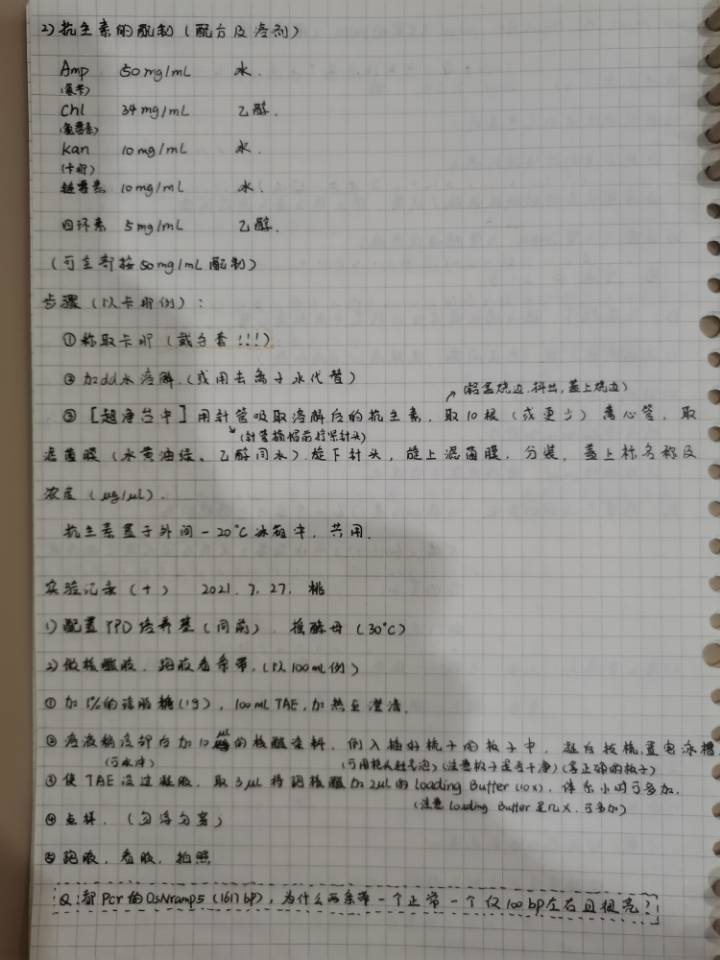 2) 抗生素的配制 (配方及溶剂)
Amp 50 mg/mL 水.
(氨苄)
Chl 34 mg/mL 乙醇.
(氯霉素)
Kan 10 mg/mL 水.
(卡那)
链霉素 10 mg/mL 水.
四环素 5 mg/mL 乙醇.
(可全部按50 mg/mL 配制)
步骤 (以卡那例):
①称取卡那 (戴手套!!!)
② 加dd水溶解. (或用去离子水代替)
(轻盖烧边, 抖出, 盖上烧边)
③ [超净台中] 用针管吸取溶解后的抗生素, 取10根 (或更少) 离心管, 取
(针管操作前拧紧针头)
滤菌膜 (水黄油绿, 乙醇同水). 旋下针头, 旋上滤菌膜, 分装, 盖上标名称及
浓度 (μg/μL).
抗生素置于外间 -20℃ 冰箱中, 共用.
实验记录 (十) 2021. 7. 27. 桃
1) 配置YPD培养基 (同前). 摇酵母 (30℃)
2) 做核酸胶. 跑胶看条带. (以100mL例)
① 加1%的琼脂糖 (1g), 100mL TAE, 加热至澄清.
② 溶液稍凉卸台加10μL的核酸染料. 倒入插好梳子的板子中, 凝后拔梳, 置电泳槽
(可水冲) (可用枪头赶气泡) (注意板子是否干净) (备正确的板子)
③ 使TAE没过凝胶. 取3μL待跑核酸加2μL的Loading Buffer (10x), 体系小时可多加.
(注意Loading Buffer是几X, 可多加)
④ 点样. (勿浮勿穿)
⑤ 跑胶, 看胶, 拍照
Q: 都Pcr的OsNramp5 (1617bp), 为什么两条带一个正常一个仅100bp左右且很亮?